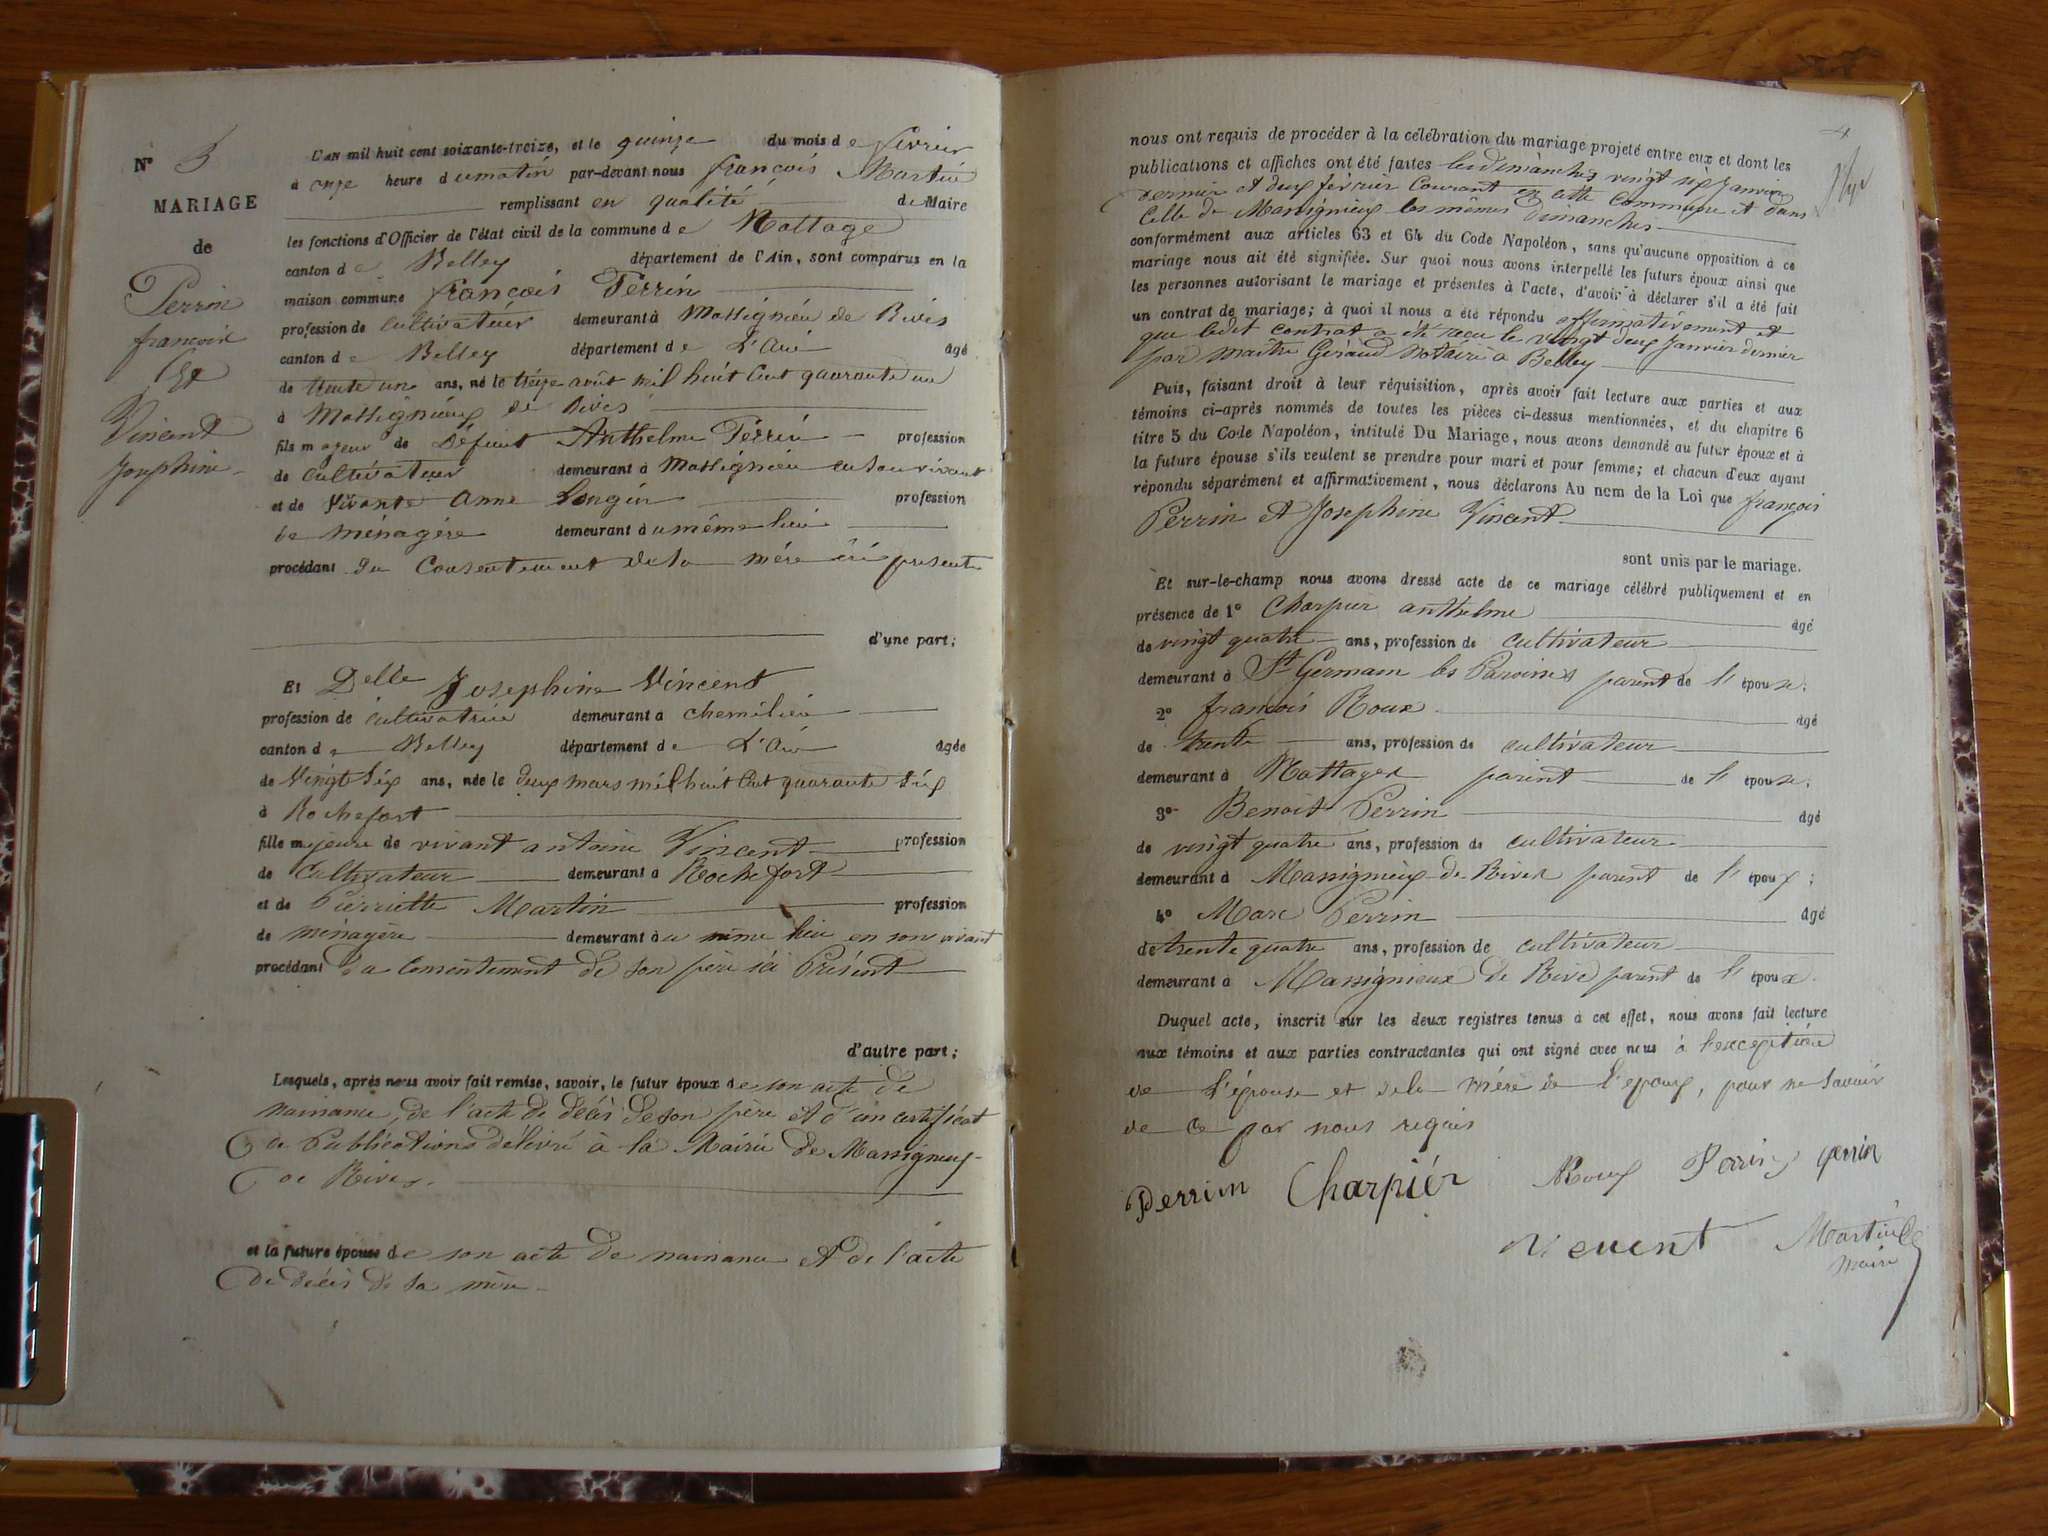 N° 3
MARIAGE
de
Perrin
françois
Et
Vincent
Josephine
L'AN mil huit cent soixante-treize, et le quinze du mois de fevrier
à onze heure du matin par-devant nous françois Martin
remplissant en qualité de Maire
les fonctions d'Officier de l'état civil de la commune de Nattage
canton de Belley département de l'Ain, sont comparus en la
maison commune françois Perrin
profession de cultivateur demeurant à Massignieu de Rives
canton de Belley département de L'Ain âgé
de trente un ans, né le treize août mil huit Cent quarante un
à Massignieux de Rives
fils majeur de Défunt Anthelme Perrin profession
de cultivateur demeurant à Massignieu en son vivant
et de Vivante Anne Longin profession
de ménagère demeurant au même lieu
procédant du Consentement de sa mère ici présente
d'une part;
Et Delle Josephine Vincent
profession de cultivatrice demeurant à chemilieu
canton de Belley département de L'Ain âgée
de Vingt Six ans, née le deux mars mil huit Cent quarante Six
à Rochefort
fille majeure de vivant antoine Vincent profession
de Cultivateur demeurant à Rochefort
et de Pierriette Martin profession
de ménagère demeurant au même lieu en son vivant
procédant du Consentement de son père ici Présent
d'autre part;
Lesquels, après nous avoir fait remise, savoir, le futur époux de son acte de
naissance, de l'acte de décès de son père et d'un certificat
de Publications délivré à la Mairie de Massigneux
de Rives.
et la future épouse de son acte de naissance et de l'acte
de décès de sa mère
4
nous ont requis de procéder à la célébration du mariage projeté entre eux et dont les
publications et affiches ont été faites les dimanches vingt six Janvier
dernier et deux février Courant en cette Commune et dans
Celle de Massignieux les mêmes dimanches
conformément aux articles 63 et 64 du Code Napoléon, sans qu'aucune opposition à ce
mariage nous ait été signifiée. Sur quoi nous avons interpellé les futurs époux ainsi que
les personnes autorisant le mariage et présentes à l'acte, d'avoir à déclarer s'il a été fait
un contrat de mariage; à quoi il nous a été répondu affirmativement et
que ledit contrat a été reçu le vingt deux Janvier dernier
par maître Giraud Notaire à Belley
Puis, faisant droit à leur réquisition, après avoir fait lecture aux parties et aux
témoins ci-après nommés de toutes les pièces ci-dessus mentionnées, et du chapitre 6
titre 5 du Code Napoléon, intitulé Du Mariage, nous avons demandé au futur époux et à
la future épouse s'ils veulent se prendre pour mari et pour femme; et chacun d'eux ayant
répondu séparément et affirmativement, nous déclarons Au nom de la Loi que françois
Perrin et Josephine Vincent
sont unis par le mariage.
Et sur-le-champ nous avons dressé acte de ce mariage célébré publiquement et en
présence de 1° Charpier anthelme âgé
de vingt quatre ans, profession de cultivateur
demeurant à St Germain les Paroisses parent de l'épouse;
2° francois Roux âgé
de trente ans, profession de cultivateur
demeurant à Nattages parent de l'épouse;
3° Benoit Perrin âgé
de vingt quatre ans, profession de cultivateur
demeurant à Massignieux de Rives parent de l'époux;
4° Marc Perrin âgé
de trente quatre ans, profession de cultivateur
demeurant à Massignieux de Rive parent de l'époux.
Duquel acte, inscrit sur les deux registres tenus à cet effet, nous avons fait lecture
aux témoins et aux parties contractantes qui ont signé avec nous à l'exception
de l'épouse et de la mère de l'époux, pour ne Savoir
de ce par nous requis
Perrin Charpier Roux Perrin perrin
Martin
maire